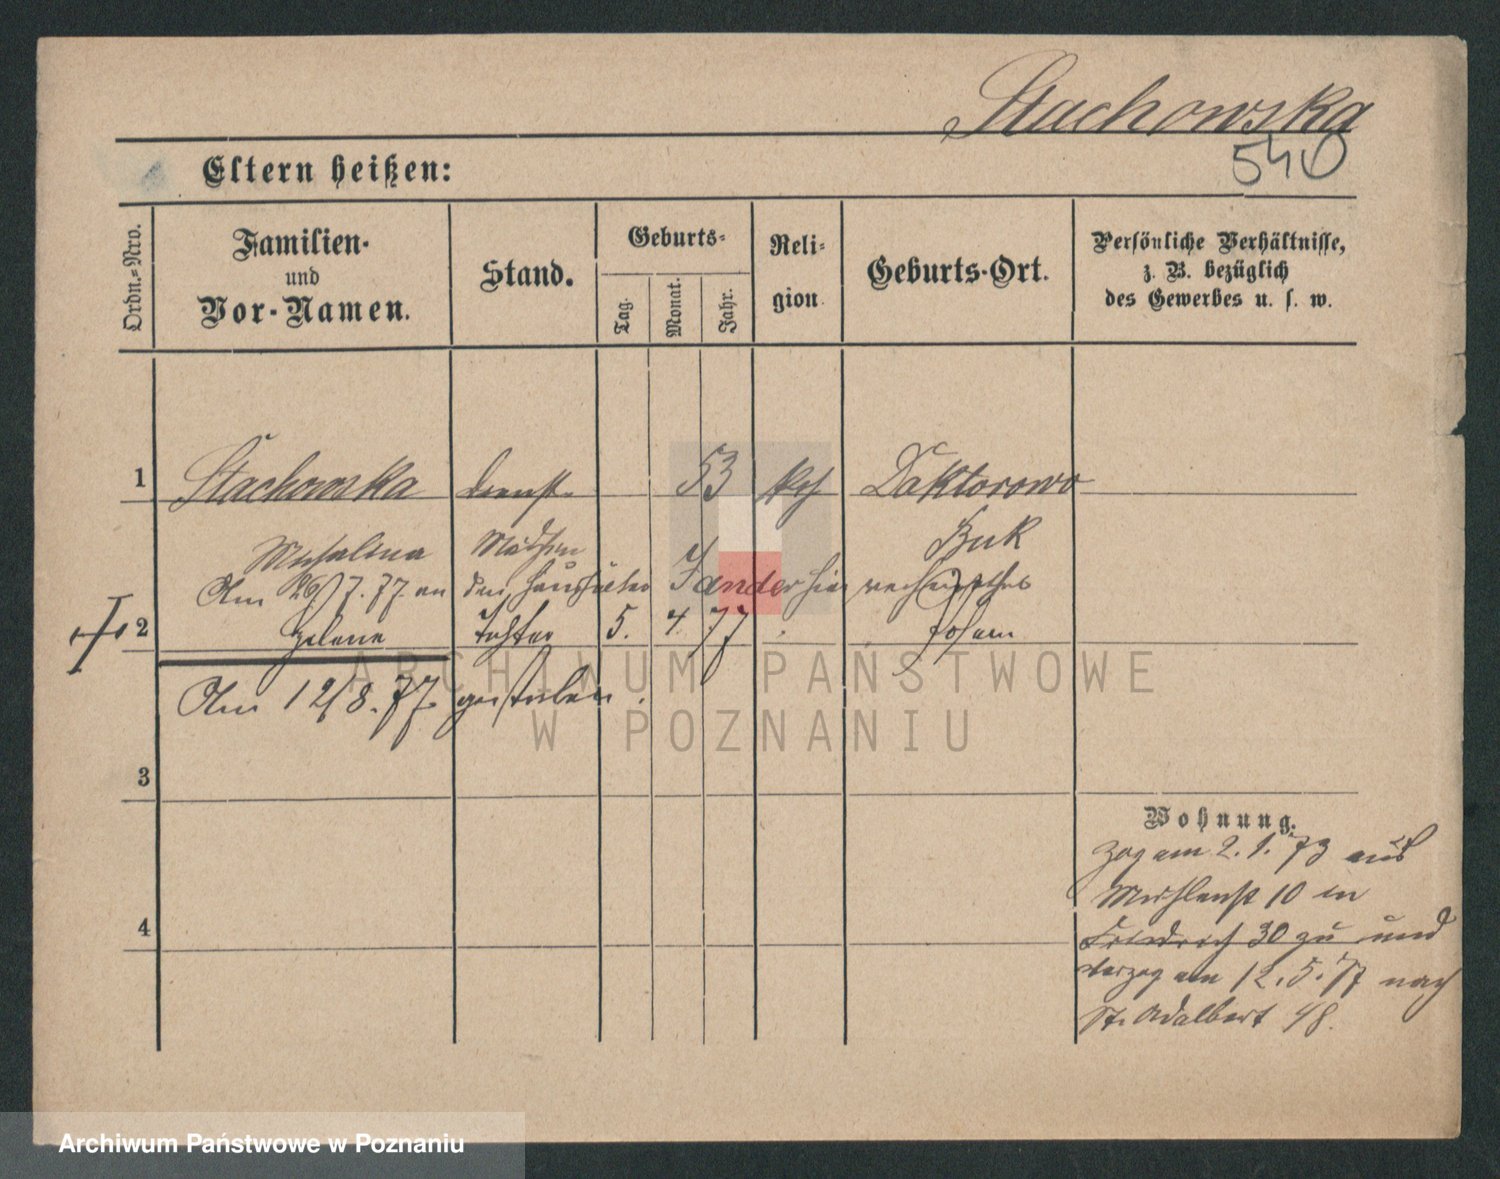 Stachowska
540
Eltern heißen:
Ordn.-Nro.
Familien-
und
Vor-Namen.
Stand.
Geburts-
Tag.
Monat.
Jahr.
Reli-
gion.
Geburts-Ort.
Persönliche Verhältnisse,
z. B. bezüglich
des Gewerbes u. s. w.
1 Stachowska Dienst- 53 kth Doktorowo
Michalina Mädchen Buk
Am 26/7.77 an den Haushälter Zander hier
2 Helene Tochter 5. 4. 77 Posen
Am 12/8.77 gestorben.
ARCHIWUM PAŃSTWOWE
W POZNANIU
3
Wohnung.
zog am 2.1.73 aus
Mühlenst 10 in
4
Friedrich 30 zu und
verzog am 12.5.77 nach
St. Adalbert 48.
Archiwum Państwowe w Poznaniu